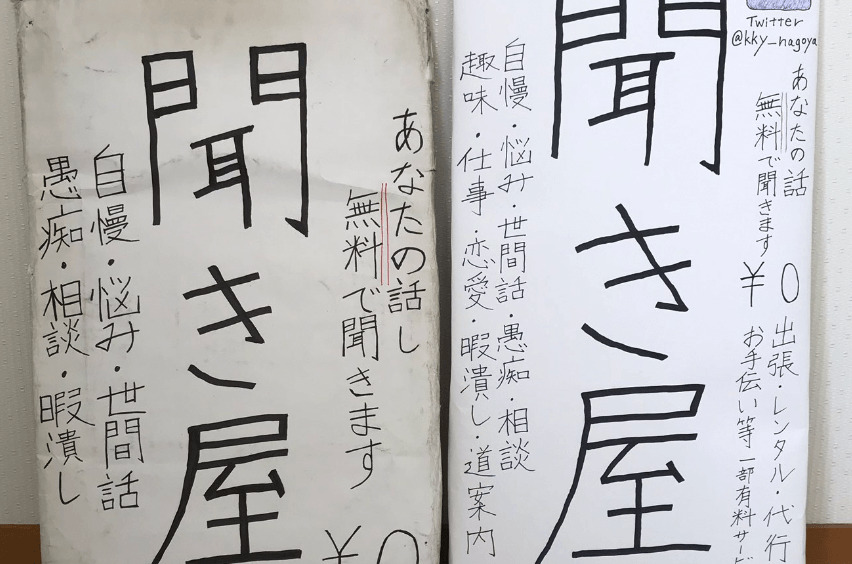 あなたの話し
無料で聞きます
¥0
聞き屋
自慢・悩み・世間話
愚痴・相談・暇潰し
Twitter
@kky_nagoya
あなたの話
無料で聞きます
¥0
出張・レンタル・代行
お手伝い等一部有料サービ
聞き屋
自慢・悩み・世間話・愚痴・相談
趣味・仕事・恋愛・暇潰し・道案内